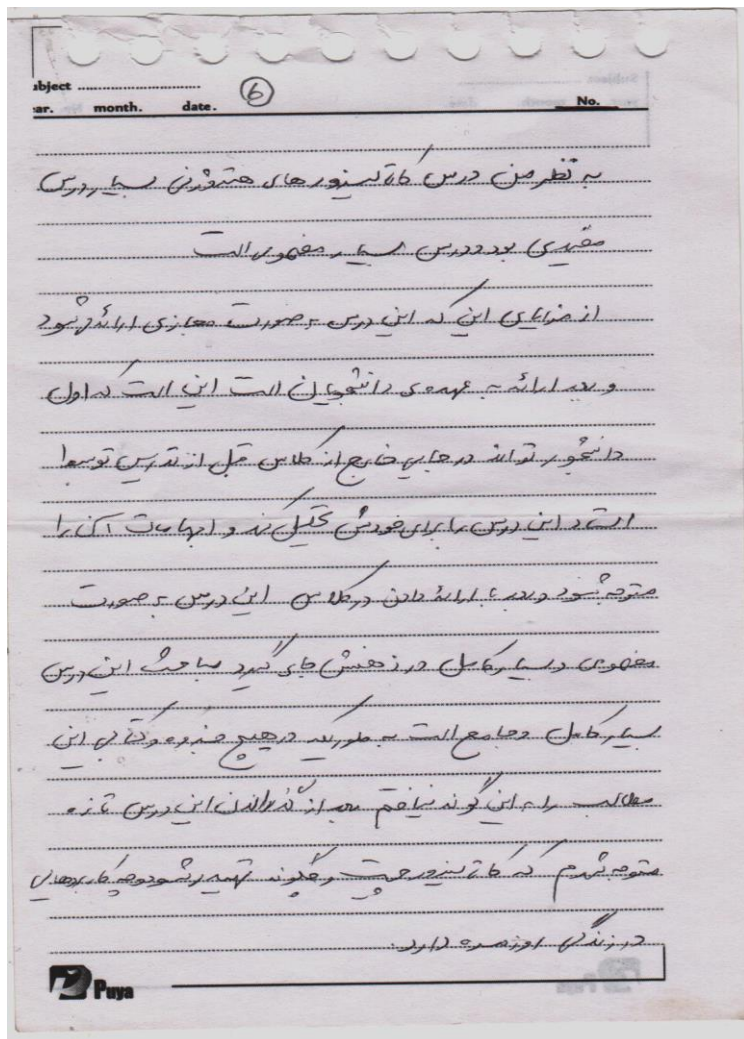 Subject
year. month. date. ⑥ No.
به نظر من درس کاتالیزورهای هتروژنی بسیار درس
مفیدی بود و درس بسیار مفهومی است
از مزایای این که این درس به صورت مجازی ارائه میشود
و بعد ارائه به عهده ی دانشجویان است این است که اول
دانشجو میتواند در جایی خارج از کلاس قبل از تدریس توسط
استاد این درس را برای خودش تحلیل کند و ابهامات آن را
متوجه شود و بعد با ارائه دادن در کلاس این درس به صورت
مفهومی و بسیار کامل در ذهنش جای گیرد مباحث این درس
بسیار کامل و جامع است به طوریکه در هیچ جزوه و کتابی این
مطالب را به این گونه نیافتم بعد از گذراندن این درس تازه
متوجه شدم که کاتالیزور چیست و چگونه تهیه میشود و چه کاربردهایی
در زندگی روزمره دارد.
Puya